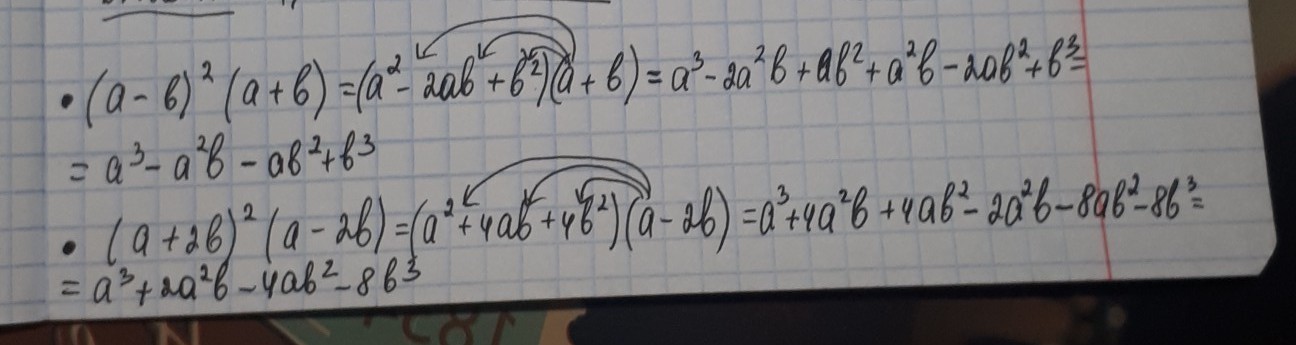 • (a - b)² (a + b) = (a² - 2ab + b²)(a + b) = a³ - 2a²b + ab² + a²b - 2ab² + b³ =
= a³ - a²b - ab² + b³
• (a + 2b)² (a - 2b) = (a² + 4ab + 4b²)(a - 2b) = a³ + 4a²b + 4ab² - 2a²b - 8ab² - 8b³ =
= a³ + 2a²b - 4ab² - 8b³